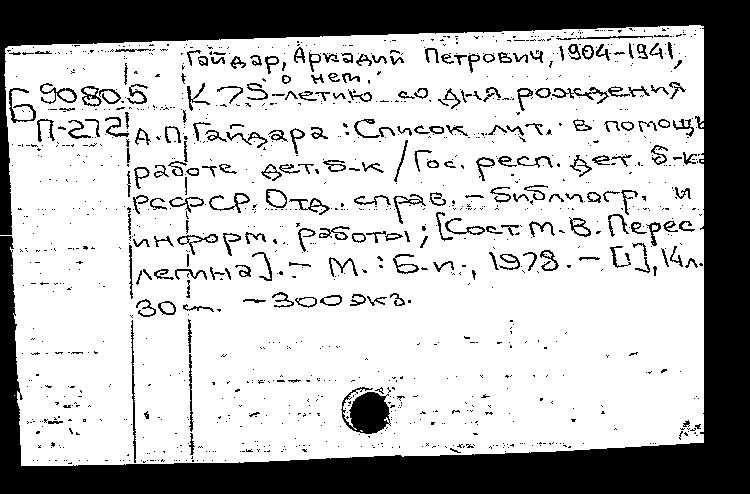 Гайдар, Аркадий Петрович, 1904-1941,
о нем.
Б 90805 К 75-летию со дня рождения
П-272 А.П. Гайдара : Список лит. в помощь
работе дет. б-к / Гос. респ. дет. б-ка
РСФСР. Отд. справ. - библиогр. и
информ. работы ; [Сост М. В. Перес-
легина]. - М. : Б.и., 1978. - [1], 14л.
30 см. - 300 экз.